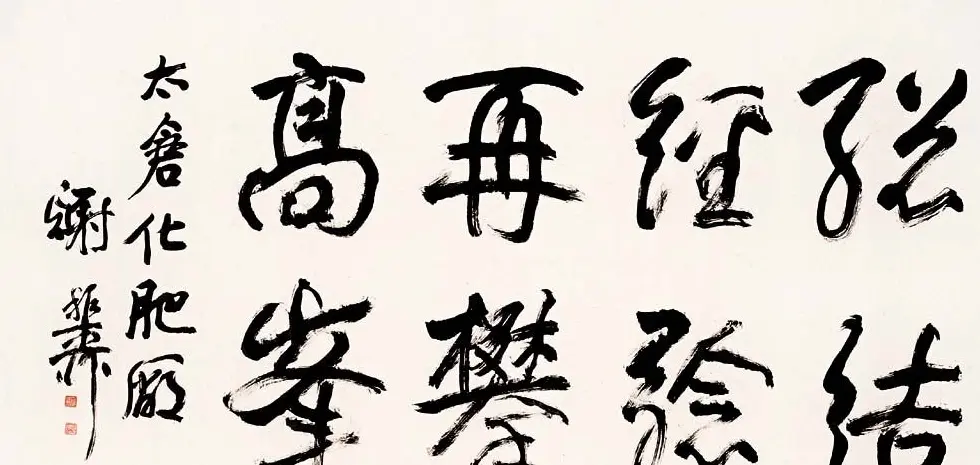 總結
經驗
再攀
高峯
太倉化肥廠
謝稚柳